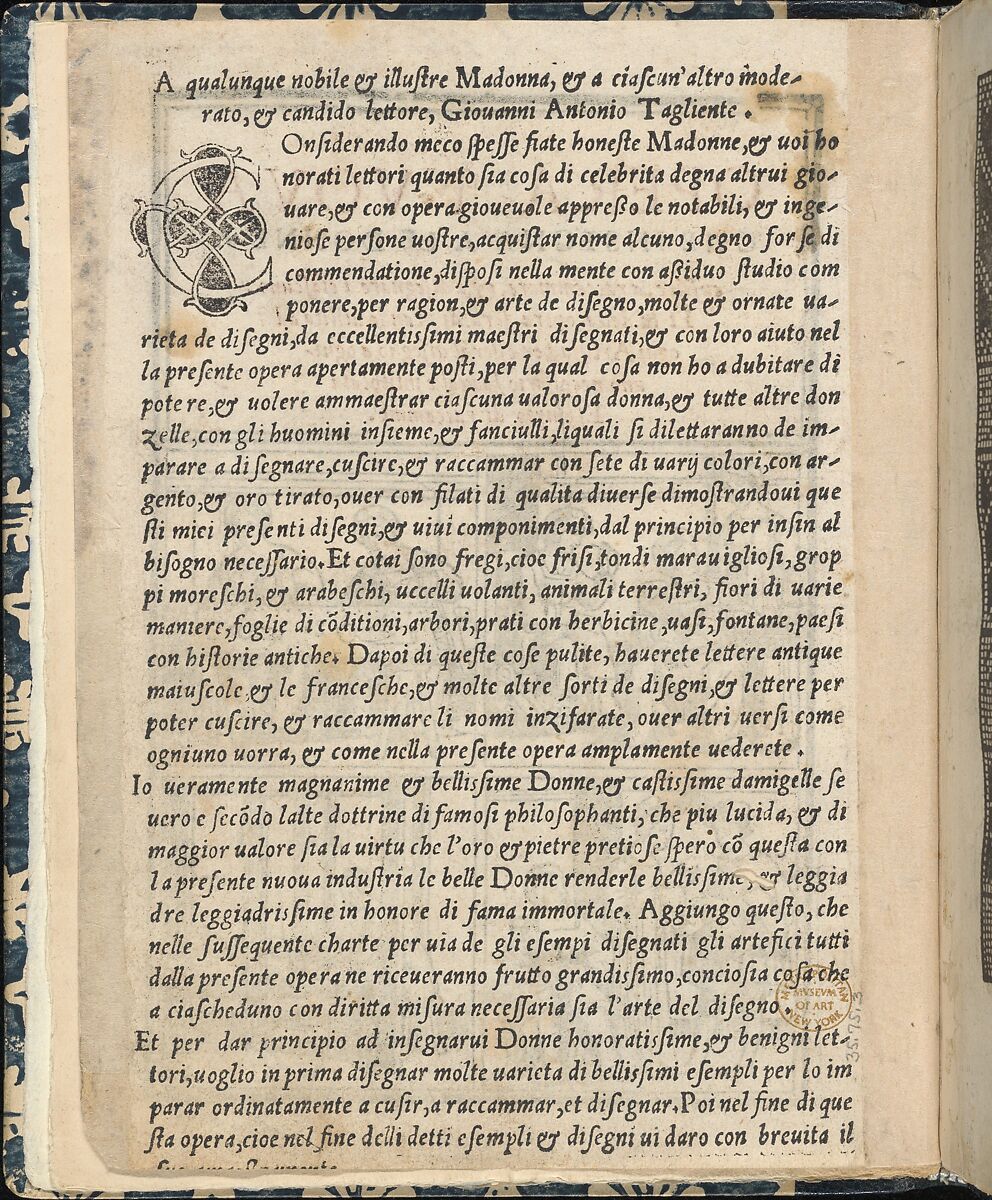 A qualunque nobile & illuſtre Madonna, & a ciaſcun'altro mode-
rato, & candido lettore, Giouanni Antonio Tagliente .
COnſiderando meco ſpeſſe fiate honeſte Madonne, & uoi ho
norati lettori quanto ſia coſa di celebrita degna altrui gio-
uare, & con opera gioueuole appreßo le notabili, & inge-
nioſe perſone uoſtre, acquiſtar nome alcuno, degno for ſe di
commendatione, diſpoſi nella mente con aßiduo ſtudio com
ponere, per ragion, & arte de diſegno, molte & ornate ua-
rieta de diſegni, da eccellentiſſimi maeſtri diſegnati, & con loro aiuto nel
la preſente opera apertamente poſti, per la qual coſa non ho a dubitare di
potere, & uolere ammaeſtrar ciaſcuna ualoroſa donna, & tutte altre don
zelle, con gli huomini inſieme, & fanciulli, liquali ſi dilettaranno de im-
parare a diſegnare, cuſcire, & raccammar con ſete di uarij colori, con ar-
gento, & oro tirato, ouer con filati di qualita diuerſe dimoſtrandoui que
ſti miei preſenti diſegni, & uiui componimenti, dal principio per inſin al
biſogno neceſſario. Et cotai ſono fregi, cioe friſi, tondi marauiglioſi, grop
pi moreſchi, & arabeſchi, uccelli uolanti, animali terreſtri, fiori di uarie
maniere, foglie di cõditioni, arbori, prati con herbicine, uaſi, fontane, paeſi
con hiſtorie antiche. Dapoi di queſte coſe pulite, hauerete lettere antique
maiuſcole, & le franceſche, & molte altre ſorti de diſegni, & lettere per
poter cuſcire, & raccammare li nomi inzifarate, ouer altri uerſi come
ogniuno uorra, & come nella preſente opera amplamente uederete .
Io ueramente magnanime & belliſſime Donne, & caſtiſſime damigelle ſe
uero e ſecõdo lalte dottrine di famoſi philoſophanti, che piu lucida, & di
maggior ualore ſia la uirtu che l'oro & pietre pretioſe ſpero cõ queſta con
la preſente nuoua induſtria le belle Donne renderle belliſſime, & leggia
dre leggiadriſſime in honore di fama immortale. Aggiungo queſto, che
nelle ſuſſequente charte per uia de gli eſempi diſegnati gli artefici tutti
dalla preſente opera ne riceueranno frutto grandiſſimo, concioſia coſa che
a ciaſcheduno con diritta miſura neceſſaria ſia l'arte del diſegno .
Et per dar principio ad inſegnarui Donne honoratiſſime, & benigni let-
tori, uoglio in prima diſegnar molte uarieta di belliſſimi eſempli per lo im
parar ordinatamente a cuſir, a raccammar, et diſegnar. Poi nel fine di que
ſta opera, cioe nel fine delli detti eſempli & diſegni ui daro con breuita il
MUSEUM
OF ART
NEW YORK